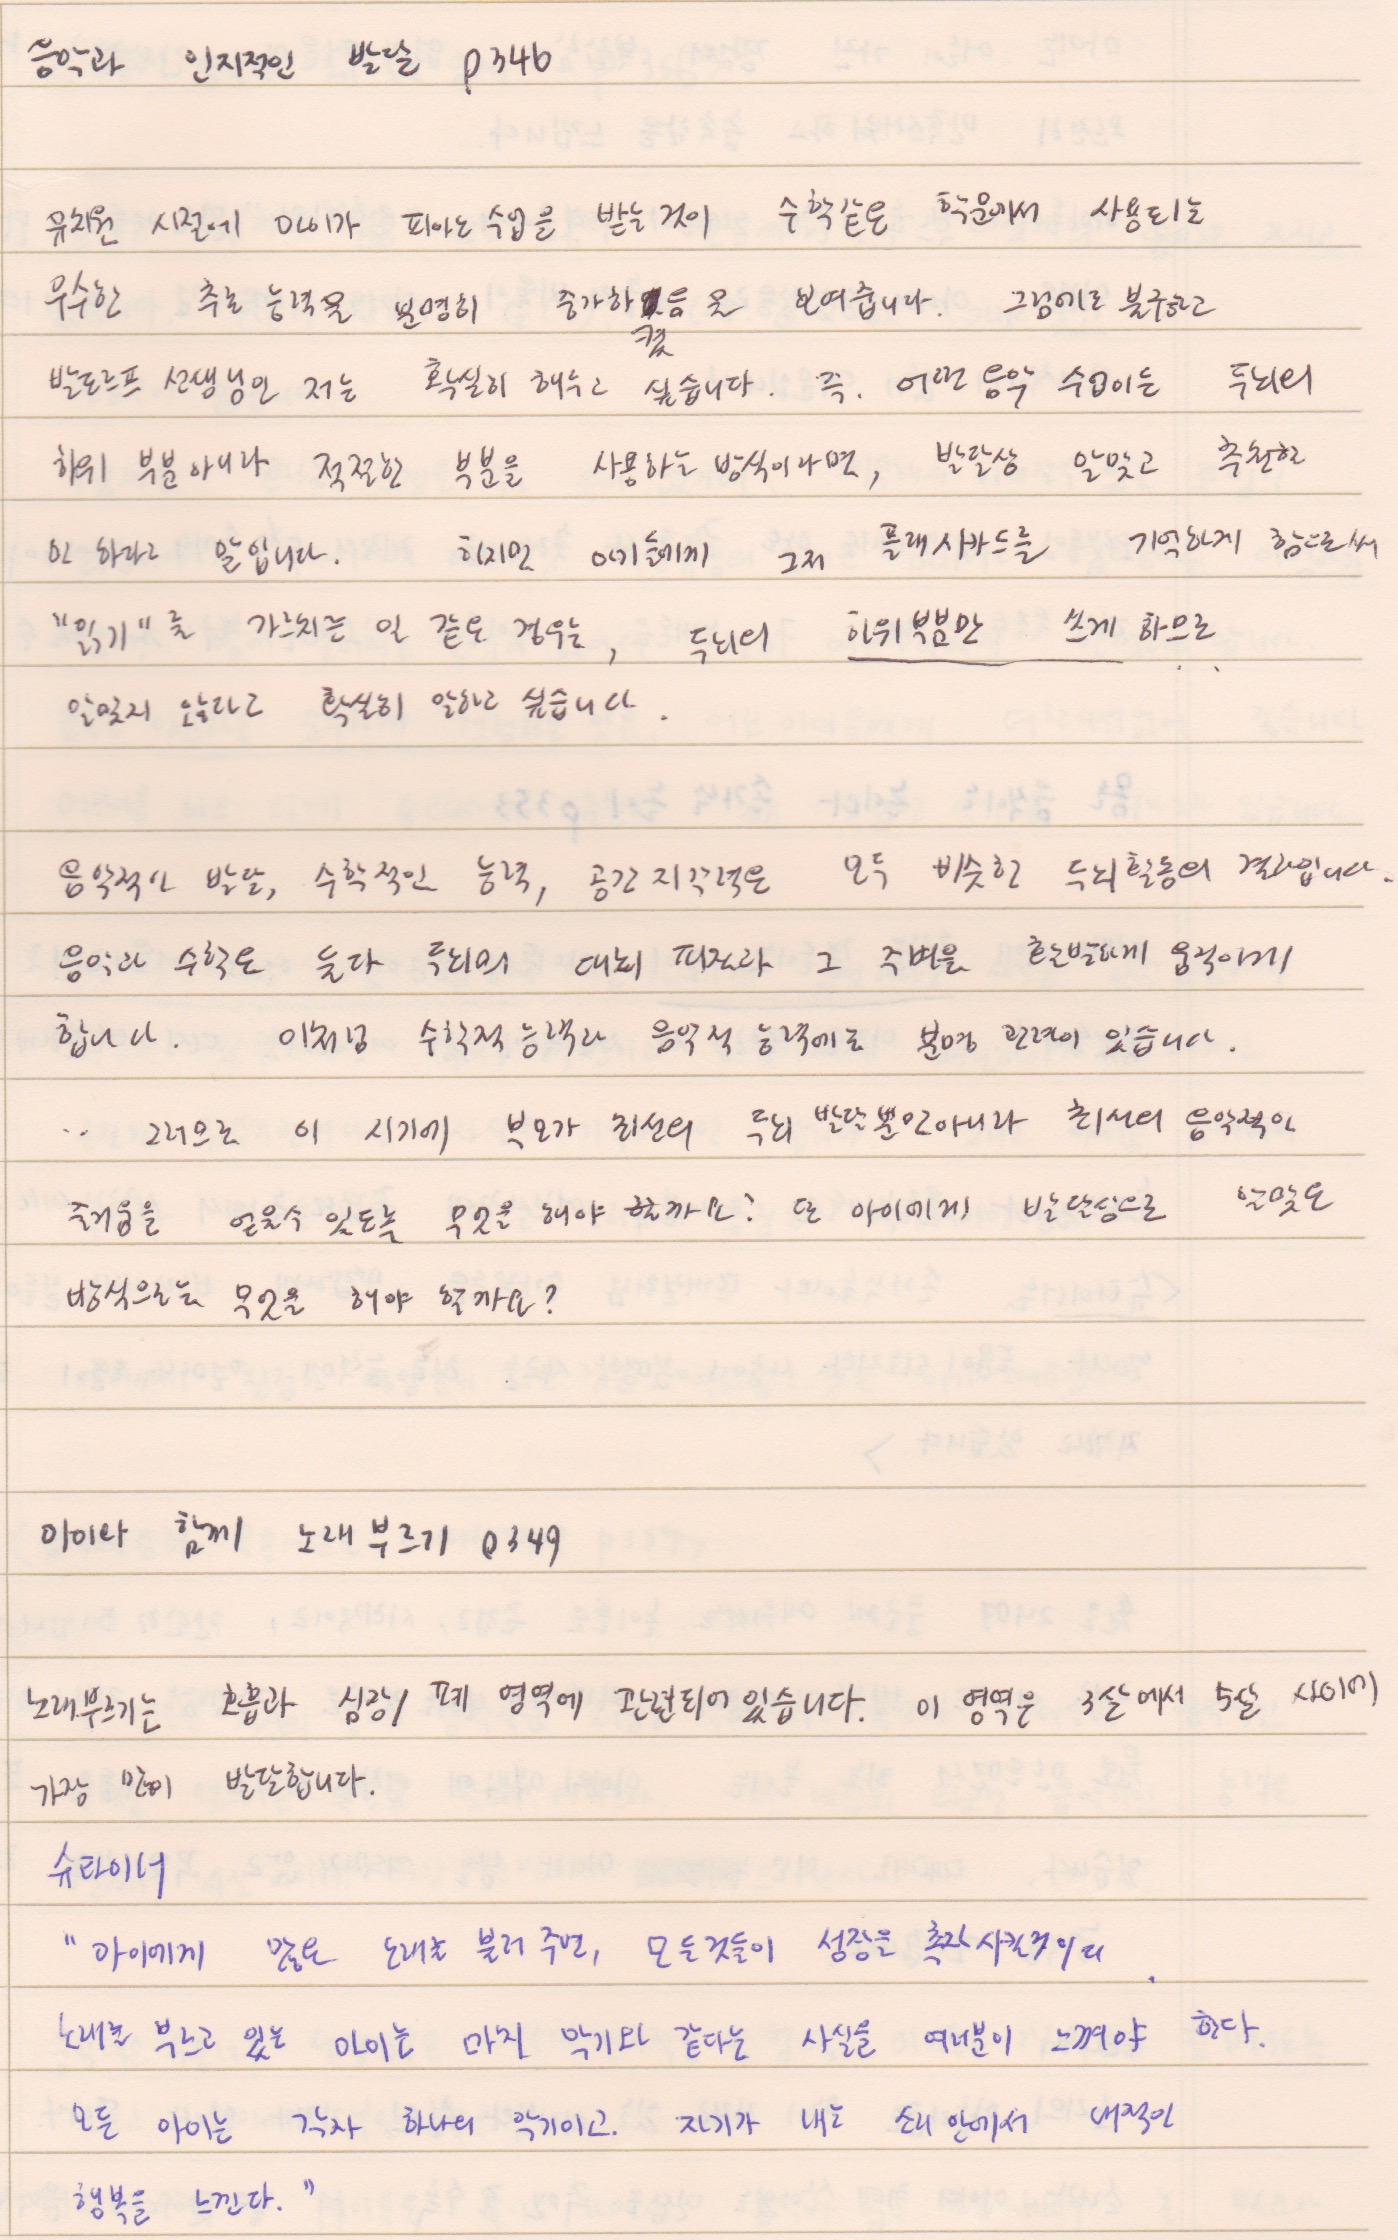 음악과 인지적인 발달 p346
유치원 시절에 아이가 피아노 수업을 받는 것이 수학같은 학문에서 사용되는
우수한 추론 능력을 분명히 증가하음 을 보여줍니다. 그럼에도 불구하고
켰
발도르프 선생님인 저는 확실히 해두고 싶습니다. 즉. 어떤 음악 수업이든 두뇌의
하위 부분아니라 적절한 부분을 사용하는 방식이라면, 발달상 알맞고 추천할
만 하다고 말입니다. 하지만 아기들에게 그저 플래시카드를 기억하게 함으로써
"읽기"를 가르치는 일 같은 경우는, 두뇌의 하위부분만 쓰게 하므로
알맞지 않다고 확실히 말하고 싶습니다.
음악적인 발달, 수학적인 능력, 공간 지각력은 모두 비슷한 두뇌활동의 결과입니다.
음악과 수학은 둘다 두뇌의 대뇌 피질과 그 주변을 활발하게 움직이게
합니다. 이처럼 수학적 능력과 음악적 능력에는 분명 관련이 있습니다.
.. 그러므로 이 시기에 부모가 최선의 두뇌 발달뿐만아니라 최선의 음악적인
즐거움을 얻을수 있도록 무엇을 해야 할까요? 또 아이에게 발달상으로 알맞은
방식으로는 무엇을 해야 할까요?
아이와 함께 노래 부르기 p349
노래부르기는 호흡과 심장/폐 영역에 관련되어 있습니다. 이 영역은 3살에서 5살 사이에
가장 많이 발달합니다.
슈타이너
"아이에게 많은 노래를 불러 주면, 모든것들이 성장을 촉진시킬것이다.
노래를 부르고 있는 아이는 마치 악기와 같다는 사실을 여러분이 느껴야 한다.
모든 아이는 각자 하나의 악기이고. 자기가 내는 소리 안에서 내적인
행복을 느낀다."